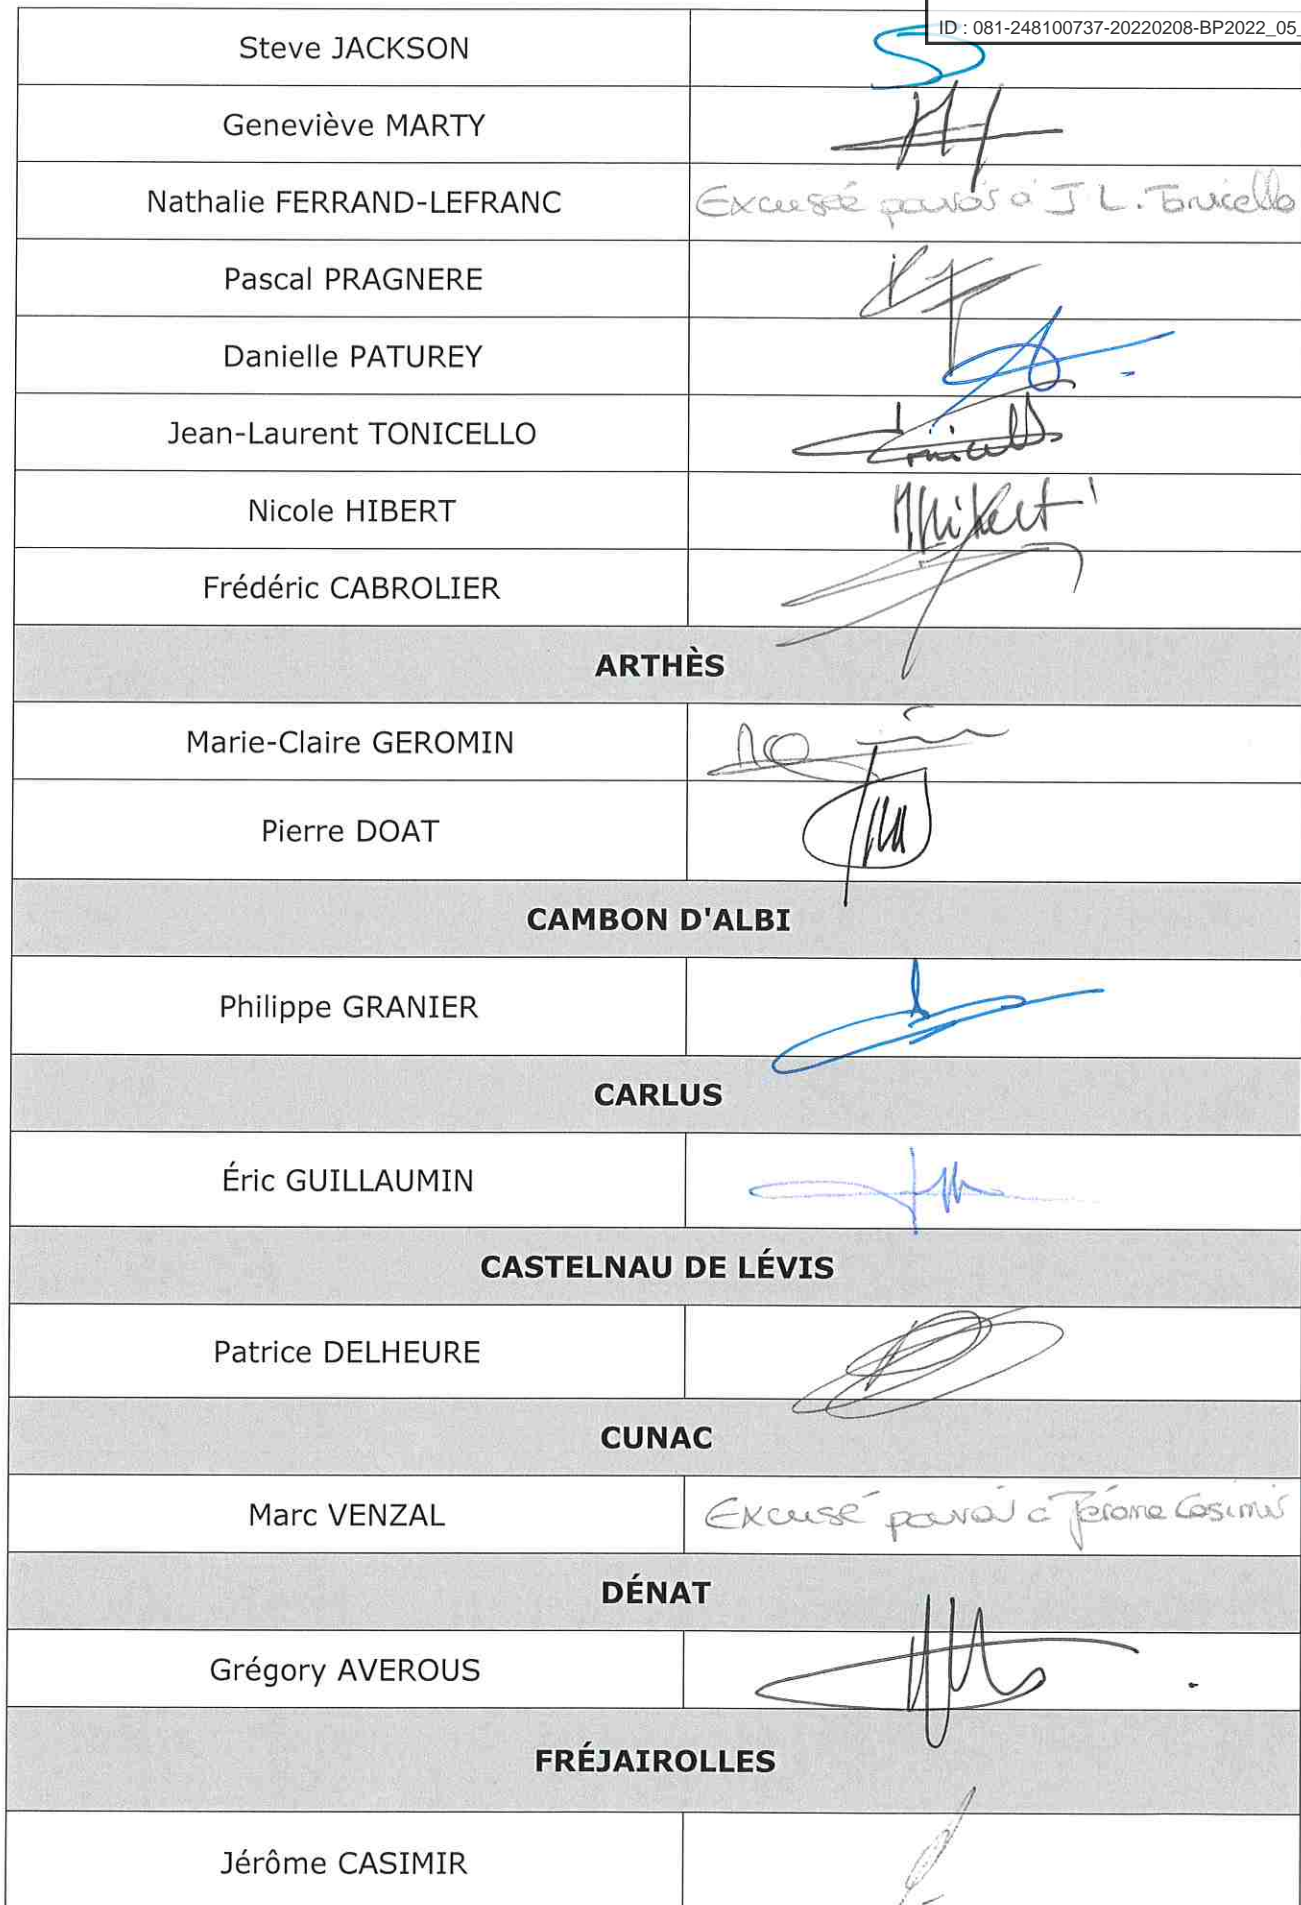 ID : 081-248100737-20220208-BP2022_05_
Steve JACKSON
Geneviève MARTY
Nathalie FERRAND-LEFRANC Excusée pouvoir à J L. Tonicello
Pascal PRAGNERE
Danielle PATUREY
Jean-Laurent TONICELLO Tonicello
Nicole HIBERT NHibert
Frédéric CABROLIER
ARTHÈS
Marie-Claire GEROMIN
Pierre DOAT
CAMBON D'ALBI
Philippe GRANIER
CARLUS
Éric GUILLAUMIN
CASTELNAU DE LÉVIS
Patrice DELHEURE
CUNAC
Marc VENZAL Excusé pouvoir à Jérome Casimir
DÉNAT
Grégory AVEROUS
FRÉJAIROLLES
Jérôme CASIMIR